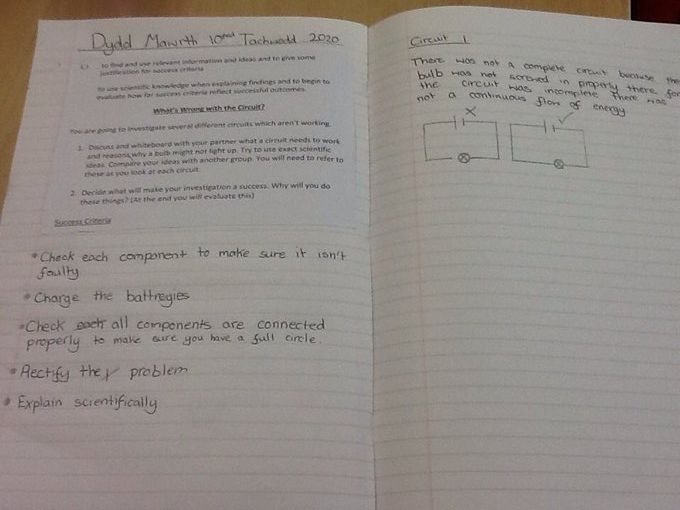 Dydd Mawrth 10fed Tachwedd 2020
L.I. to find and use relevant information and ideas and to give some
justification for success criteria
To use scientific knowledge when explaining findings and to begin to
evaluate how far success criteria reflect successful outcomes.
What's Wrong with the Circuit?
You are going to investigate several different circuits which aren't working.
1. Discuss and whiteboard with your partner what a circuit needs to work
and reasons why a bulb might not light up. Try to use exact scientific
ideas. Compare your ideas with another group. You will need to refer to
these as you look at each circuit.
2. Decide what will make your investigation a success. Why will you do
these things? (At the end you will evaluate this)
Success Criteria
• Check each component to make sure it isn't
faulty
• Charge the battregies
• Check each all components are connected
properly to make sure you have a full circle.
• Rectify the problem
• Explain scientifically
Circuit 1
There was not a complete circuit because the
bulb was not screwed in properly there for
the circuit was incomplete there was
not a continuous flow of energy